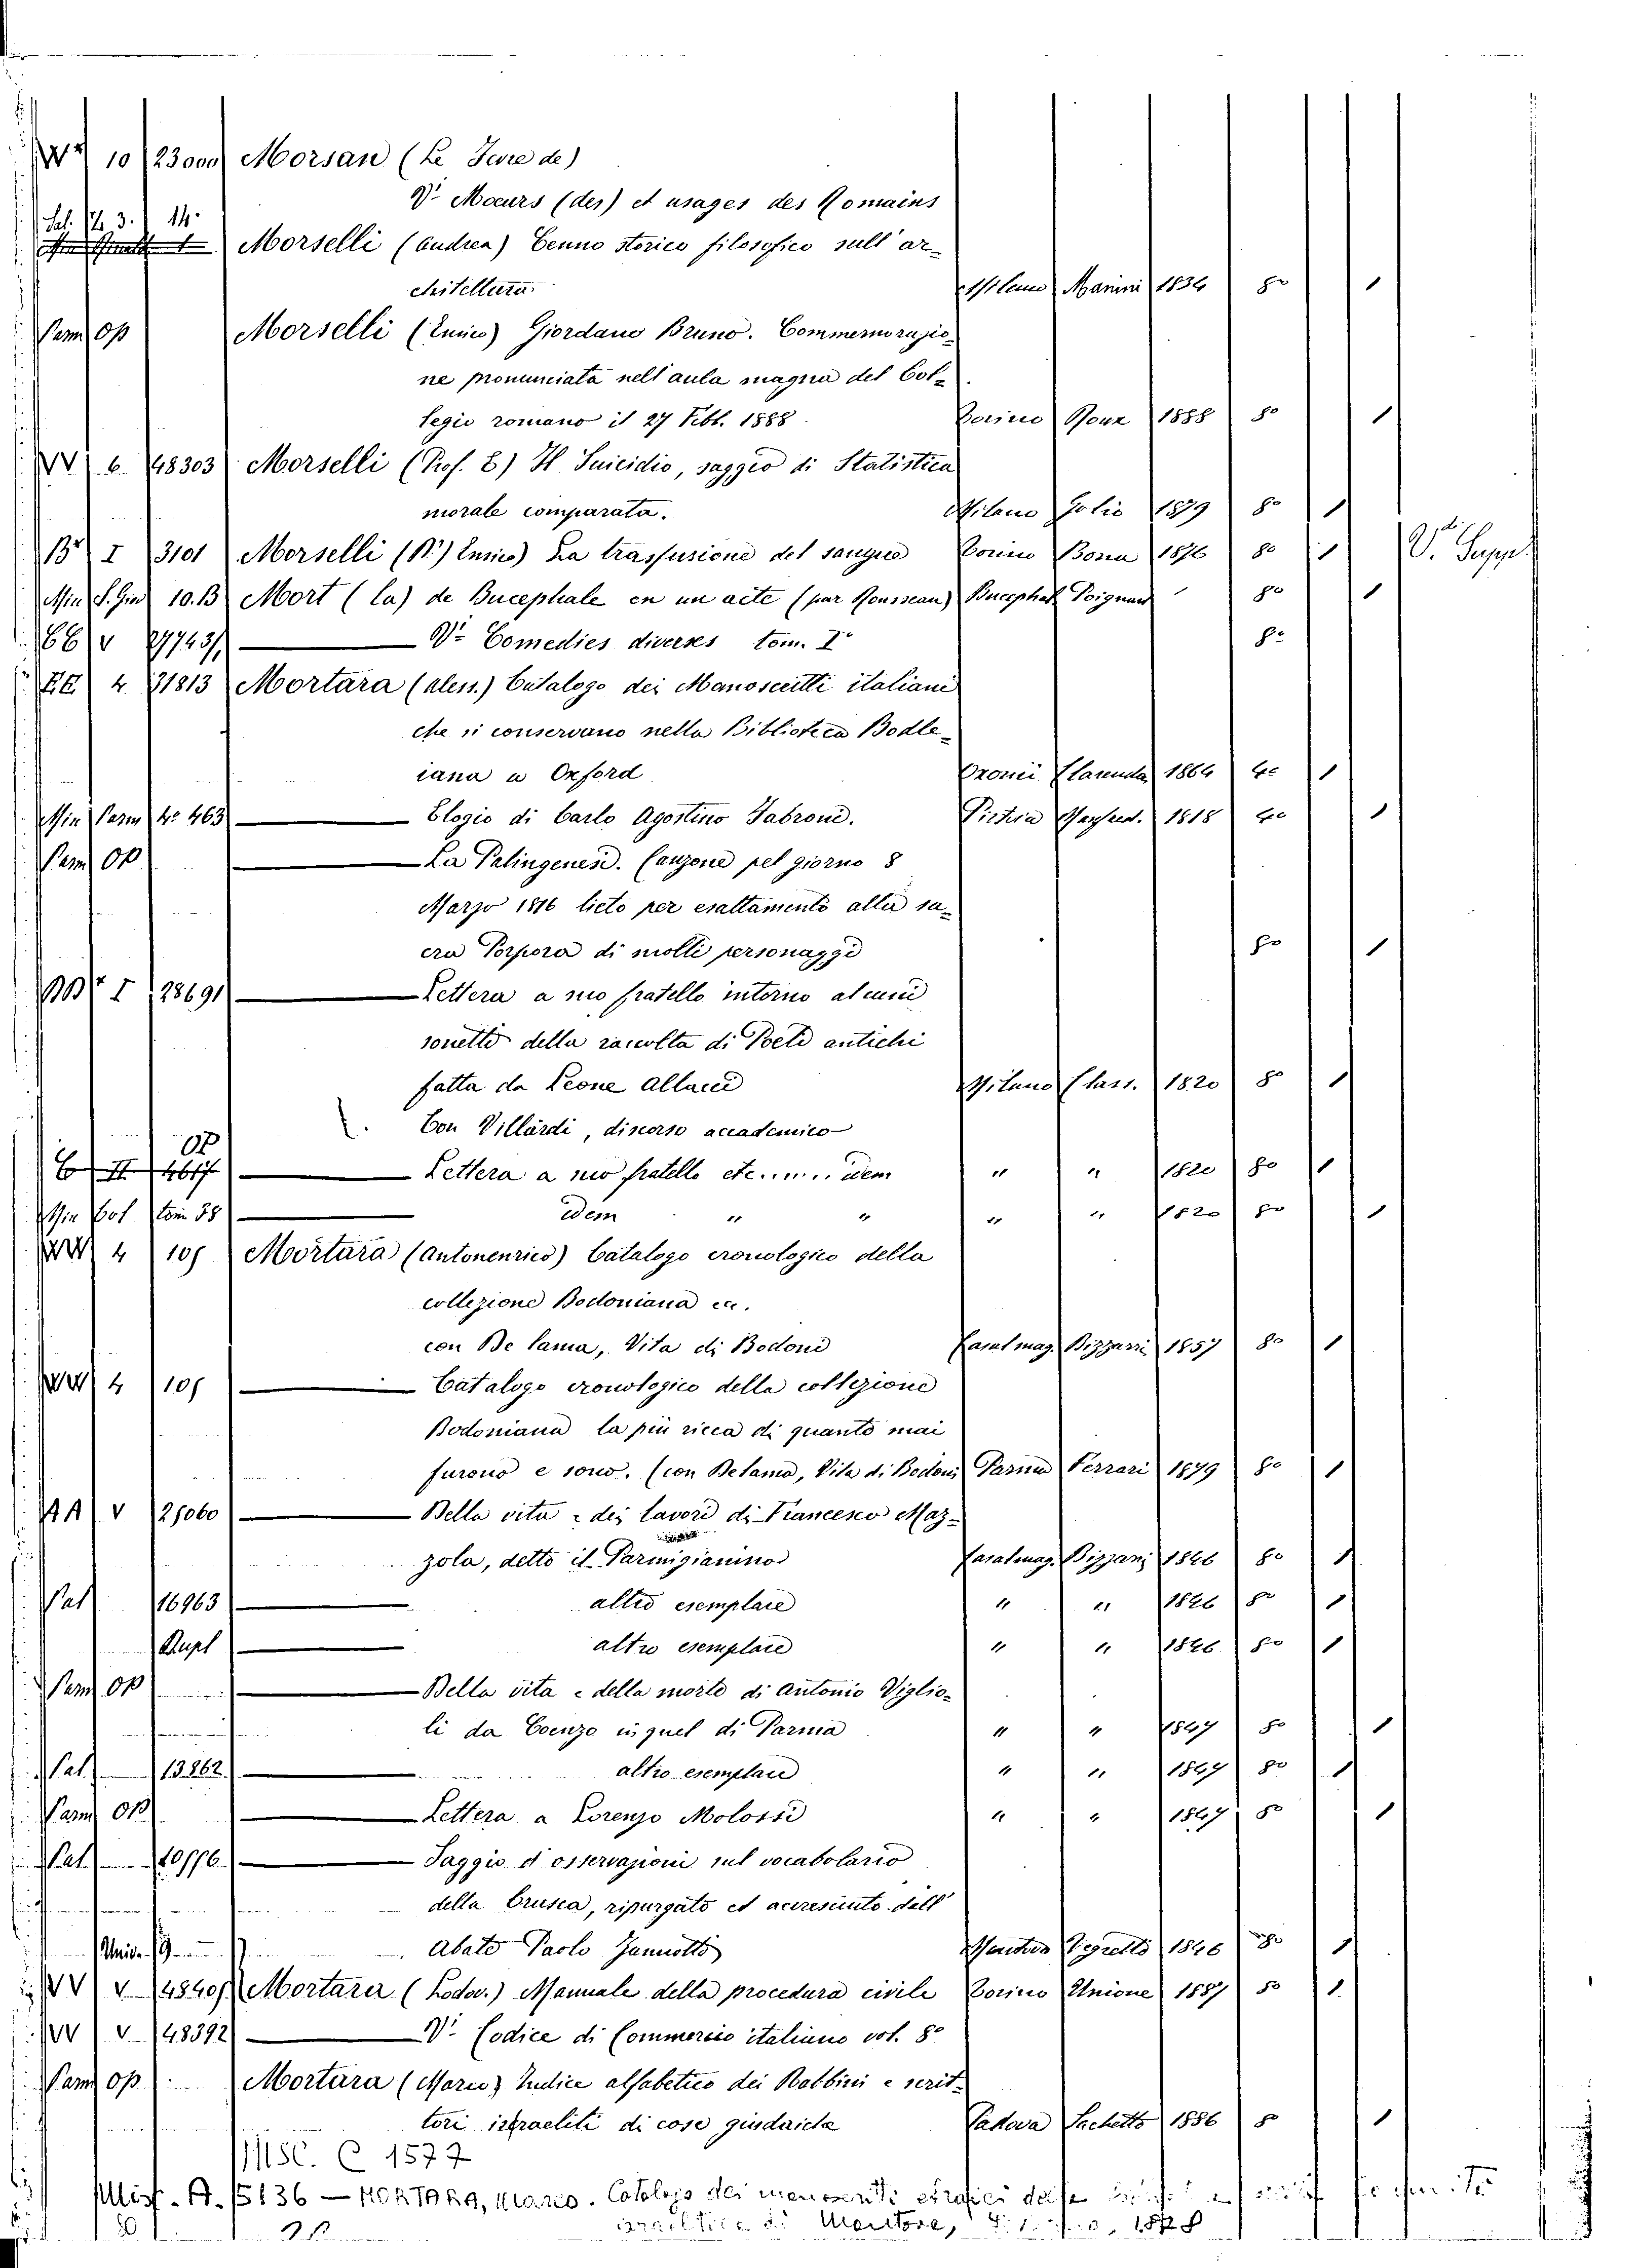 10 23000 Morsan (Le Jeune de)
Vr Moeurs (des) et usages des Romains
Sal. 3. 14.
Morselli (Andrea) Cenno storico filosofico sull'ar-
chitettura. Milano Manini 1836 8o 1
Parm Op Morselli (Enrico) Giordano Bruno. Commemorazio-
ne pronunciata nell'aula magna del Col-
legio romano il 27 Febb. 1888. Torino Roux 1888 8o 1
VV 6. 48303 Morselli (Prof. E) Il Suicidio, saggio di Statistica
morale comparata. Milano 1879 8o 1
I 3101 Morselli (Enrico) La trasfusione del sangue Torino Bona 1876 80 1 V. Suppl.
Min 10.B Mort (la) de Bucephale en un acte (par Rousseau) Bucephal Poignard 8o 1
V 27743 Vr Comedies diverses tom. Io 8o
4 31813 Mortara (Aless.) Catalogo dei Manoscritti italiani
che si conservano nella Biblioteca Bodle-
iana a Oxford Clarenda 1864 4o 1
Min Parm 4o 463 Elogio di Carlo Agostino Fabroni. 1818 4o 1
Parm Op La Palingenesi. Canzone pel giorno 8
Marzo 1816 lieto per esaltamento alla sa-
cra Porpora di molti personaggi 8o 1
I 28691 Lettera a suo fratello intorno alcuni
sonetti della raccolta di Poeti antichi
fatta da Leone Allacci Milano Class. 1820 8o 1
Con Villardi, discorso accademico
Op
4617 Lettera a suo fratello etc. idem " " 1820 80 1
Min Bot tom 38 idem " " " " 1820 80 1
4 105 Mortara (Antonenrico) Catalogo cronologico della
collezione Bodoniana ec.
con De Lama, Vita di Bodoni Casalmag. Bizzarri 1857 80 1
4 105 Catalogo cronologico della collezione
Bodoniana la più ricca di quanto mai
furono e sono. (con De Lama, Vita di Bodoni Parma Ferrari 1879 8o 1
AA V 25060 Della vita e dei lavori di Francesco Maz-
zola, detto il Parmigianino Casalmag. Bizzari 1846 80 1
Pal 16963 altro esemplare " " 1846 80 1
altro esemplare " " 1846 80 1
Parm Op Della vita e della morte di Antonio Viglio-
li da Coenzo in quel di Parma " " 1847 80 1
Pal 13862 altro esemplare " " 1847 80 1
Parm Op Lettera a Lorenzo Molossi " " 1847 80 1
Pal 10776 Saggio d'osservazioni sul vocabolario
della Crusca, ripurgato et accresciuto dall'
Abate Paolo Zannotti 1846 80 1
VV V 48405 Mortara (Lodov.) Manuale della procedura civile Torino Unione 1887 80 1
VV V 48392 Vr Codice di Commercio italiano vol. 8o
Parm Op Mortara (Marco) Indice alfabetico dei Rabbini e scrit-
tori israeliti di cose giudaiche Padova Sachetto 1886 8o 1
MISC. C 1577
Misc. A. 5136 — MORTARA, Marco. Catalogo dei manoscritti ebraici della
israelitica di Mantova, 1878